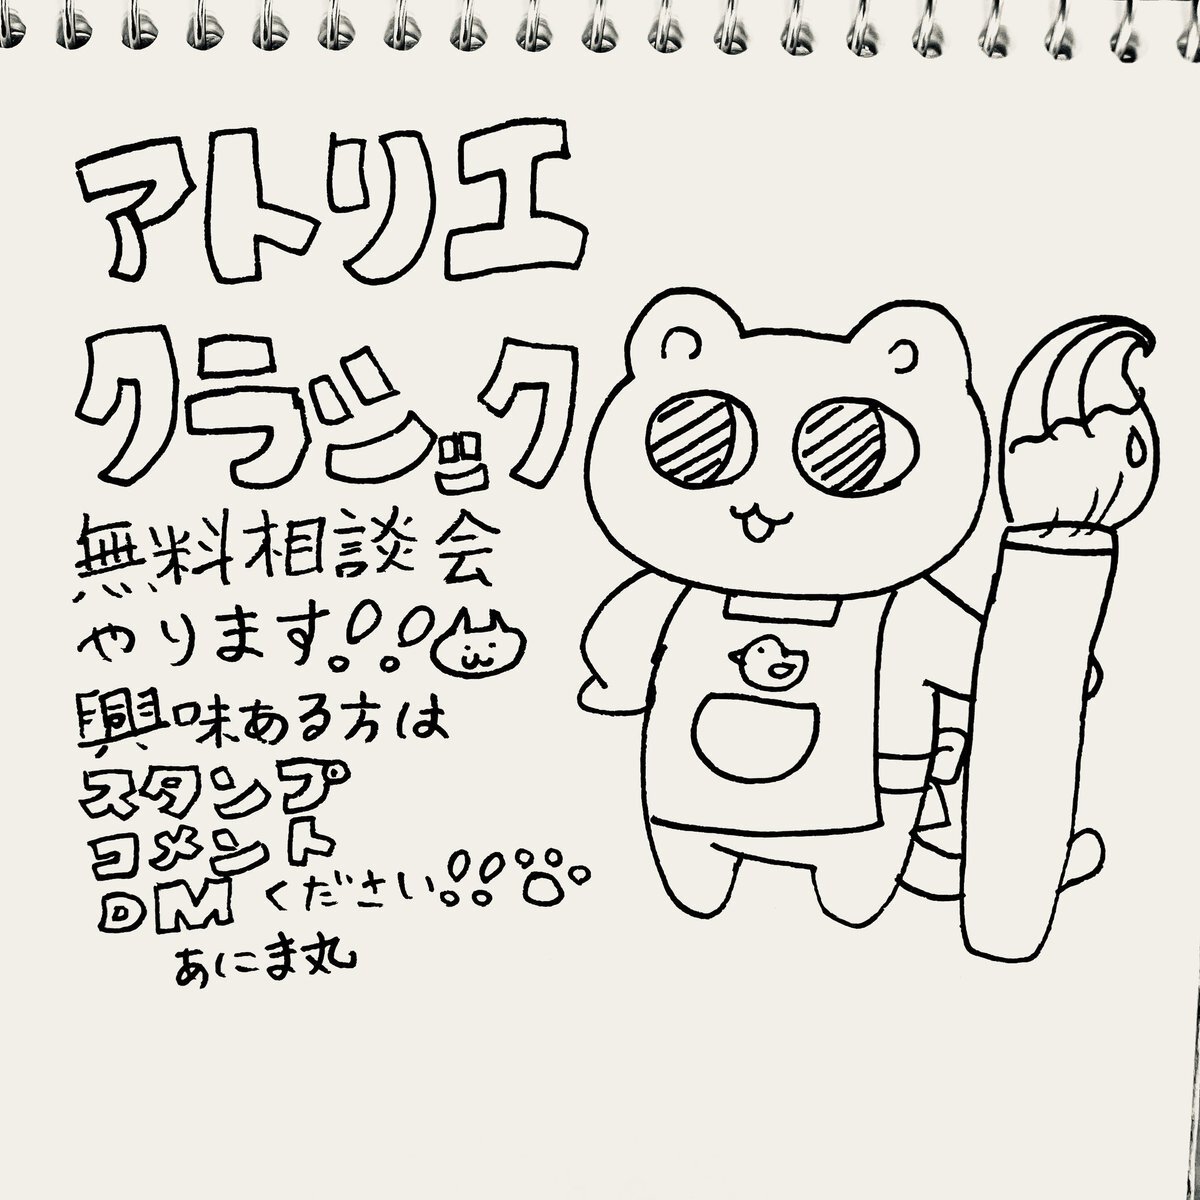 アトリエ
クラジック
無料相談会
やります!!
興味ある方は
スタンプ
コメント
DMください!!
あにま丸